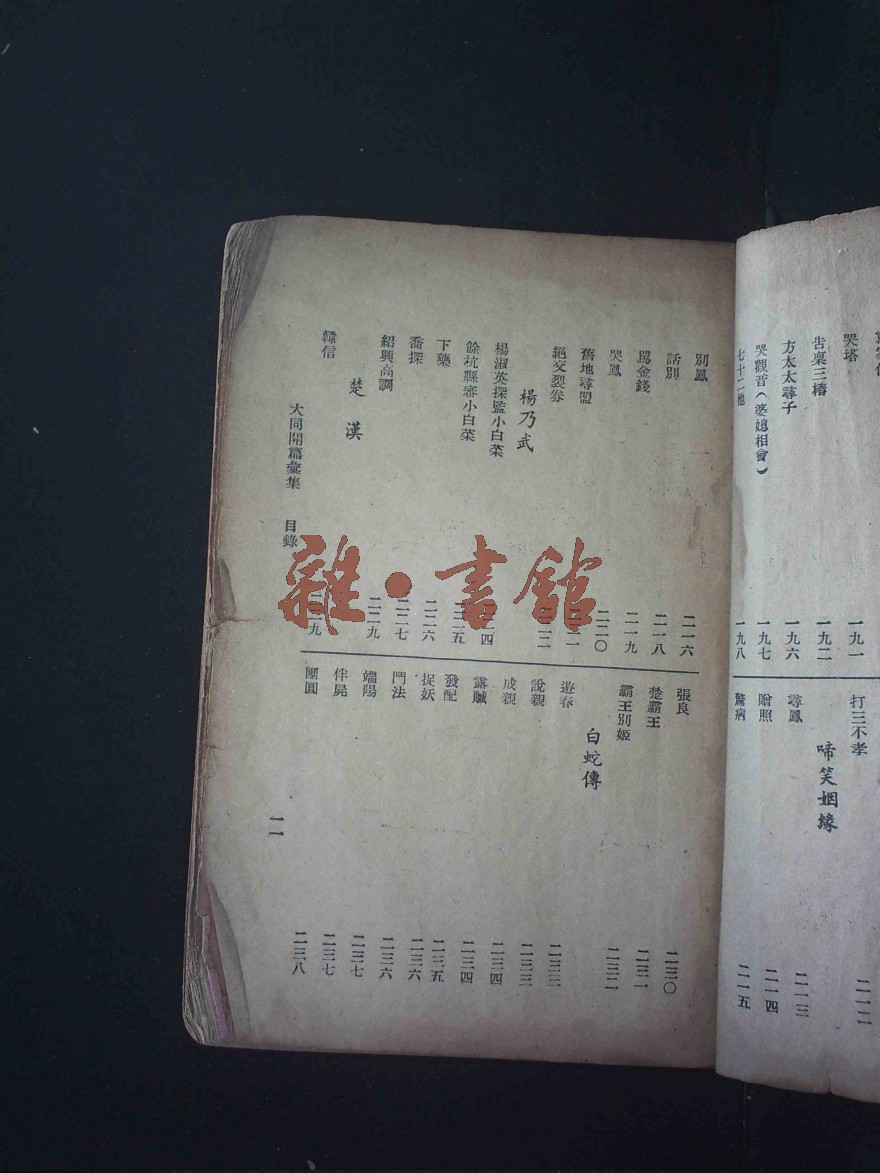 哭塔 一九一
告稟三樁 一九二
方太太尋子 一九六
哭觀音(婆媳相會) 一九七
七十二他 一九八
打三不孝 二一二
啼笑姻緣
尋鳳 二一三
贈照 二一四
驚病 二一五
別鳳 二一六
話別 二一八
罵金錢 二一九
哭鳳 二二〇
舊地尋盟
絕交裂券
楊乃武
楊淑英探監小白菜
餘杭縣審小白菜 二二五
下藥 二二六
喬探 二二七
紹興高調 二二九
楚漢
韓信 二二九
張良 二三〇
楚霸王 二三一
霸王別姬 二三二
白蛇傳
遊春 二三三
說親 二三三
成親 二三四
露贓 二三四
發配 二三五
捉妖 二三六
鬥法 二三六
端陽 二三七
伴屍 二三七
團圓 二三八
大同開篇彙集 目錄 一一
雜·書館